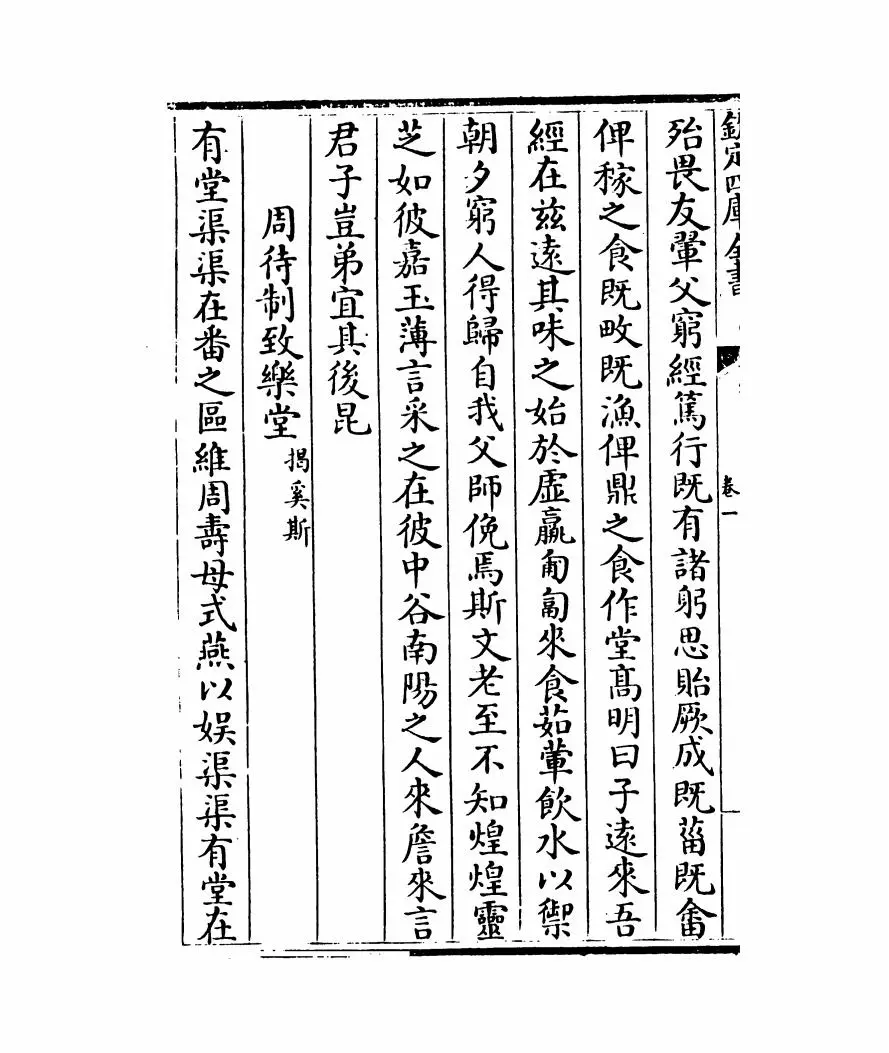 欽定四庫全書
卷一
殆畏友翬父窮經篤行既有諸躬思貽厥成既菑既畬
俾稼之食既畋既漁俾鼎之食作堂髙明曰子逺來吾
經在兹逺其味之始於虚羸匍匐來食茹葷飲水以禦
朝夕窮人得歸自我父師俛焉斯文老至不知煌煌靈
芝如彼嘉玉薄言采之在彼中谷南陽之人來詹來言
君子豈弟宜其後昆
周待制致樂堂 揭奚斯
有堂渠渠在番之區維周壽母式燕以娱渠渠有堂在